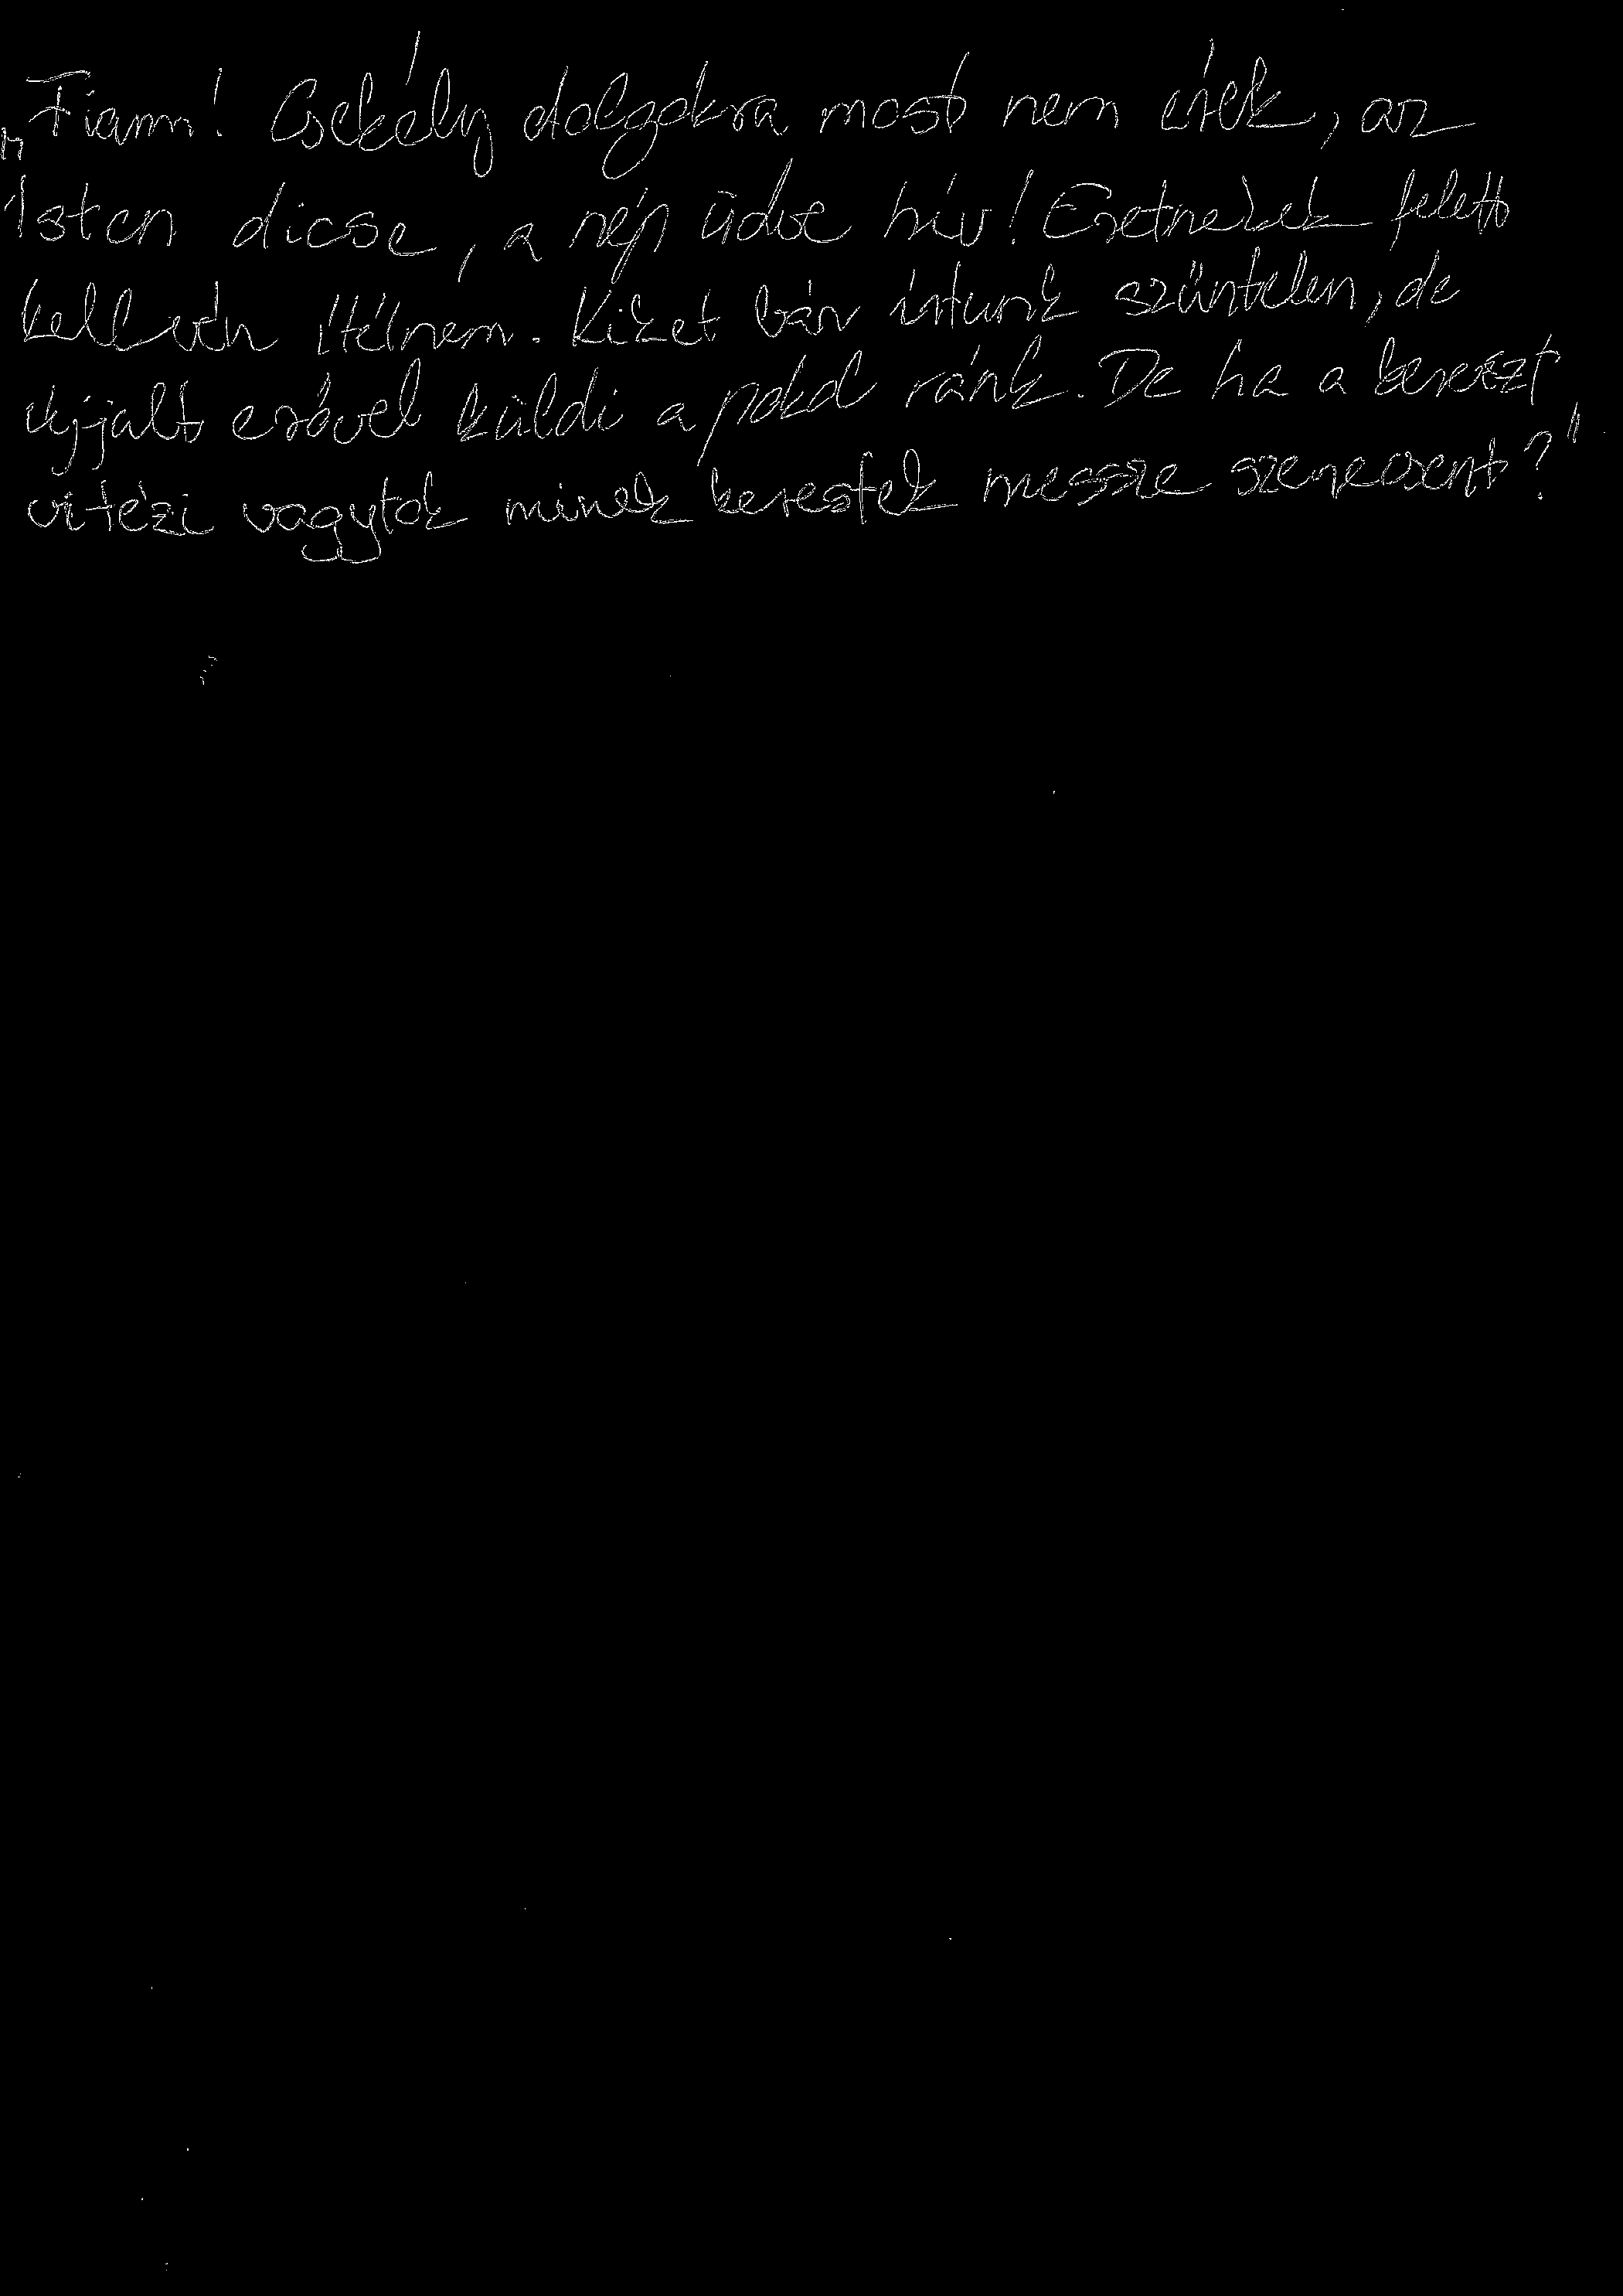 „Fiam! Csekély dolgokra most nem érek, az
Isten dicse, a nép üdve hív! Eretnekek felett
kellvén ítélnem. Kiket bár írtunk szüntelen, de
újjult erővel küldi a pokol ránk. De ha a kereszt
vitézi vagytok minek kerestek messze szerecsent?"